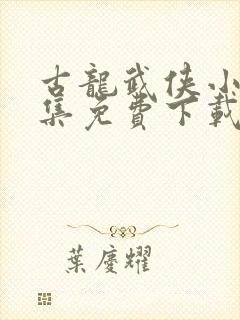 古龍武俠小
集免費下載
葉慶耀